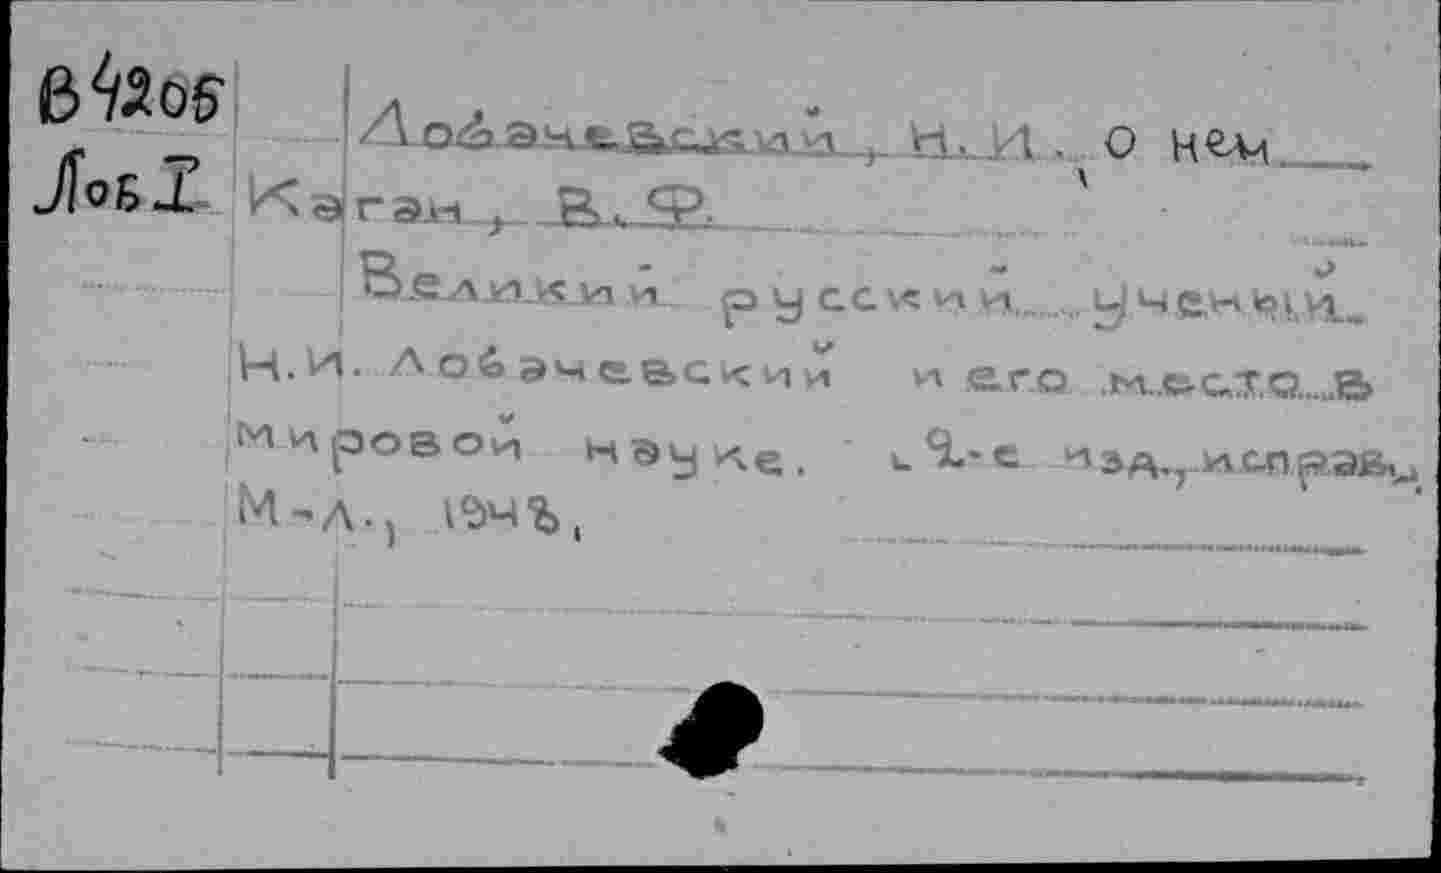 В4205
Лоб I
Лобачевский, Н. И. О нем
Каган, В. Ф.
Великий русский ученый
Н.И. Лобачевский и его место в
мировой науке. 2-е изд., исправ.,
М-Л., 1948,